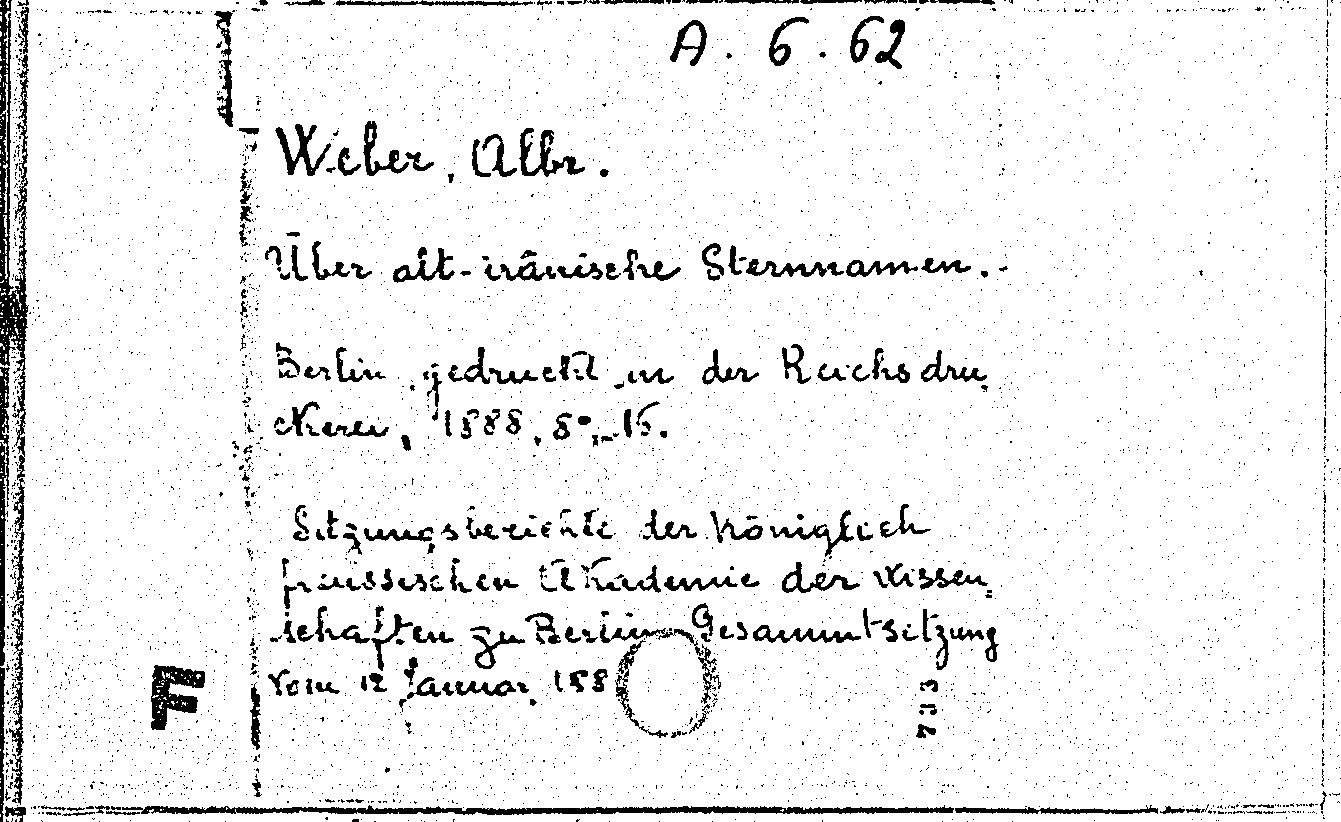 A. 6. 62
Weber, Albr.
Über alt-irânische Sternnamen.-
Berlin, gedruckt in der Reichsdru
ckerei, 1888, 8°, 16.
Sitzungsberichte der Königlich
preussischen Akademie der Wissen
schaften zu Berlin, Gesammtsitzung
vom 12 Januar, 188
F